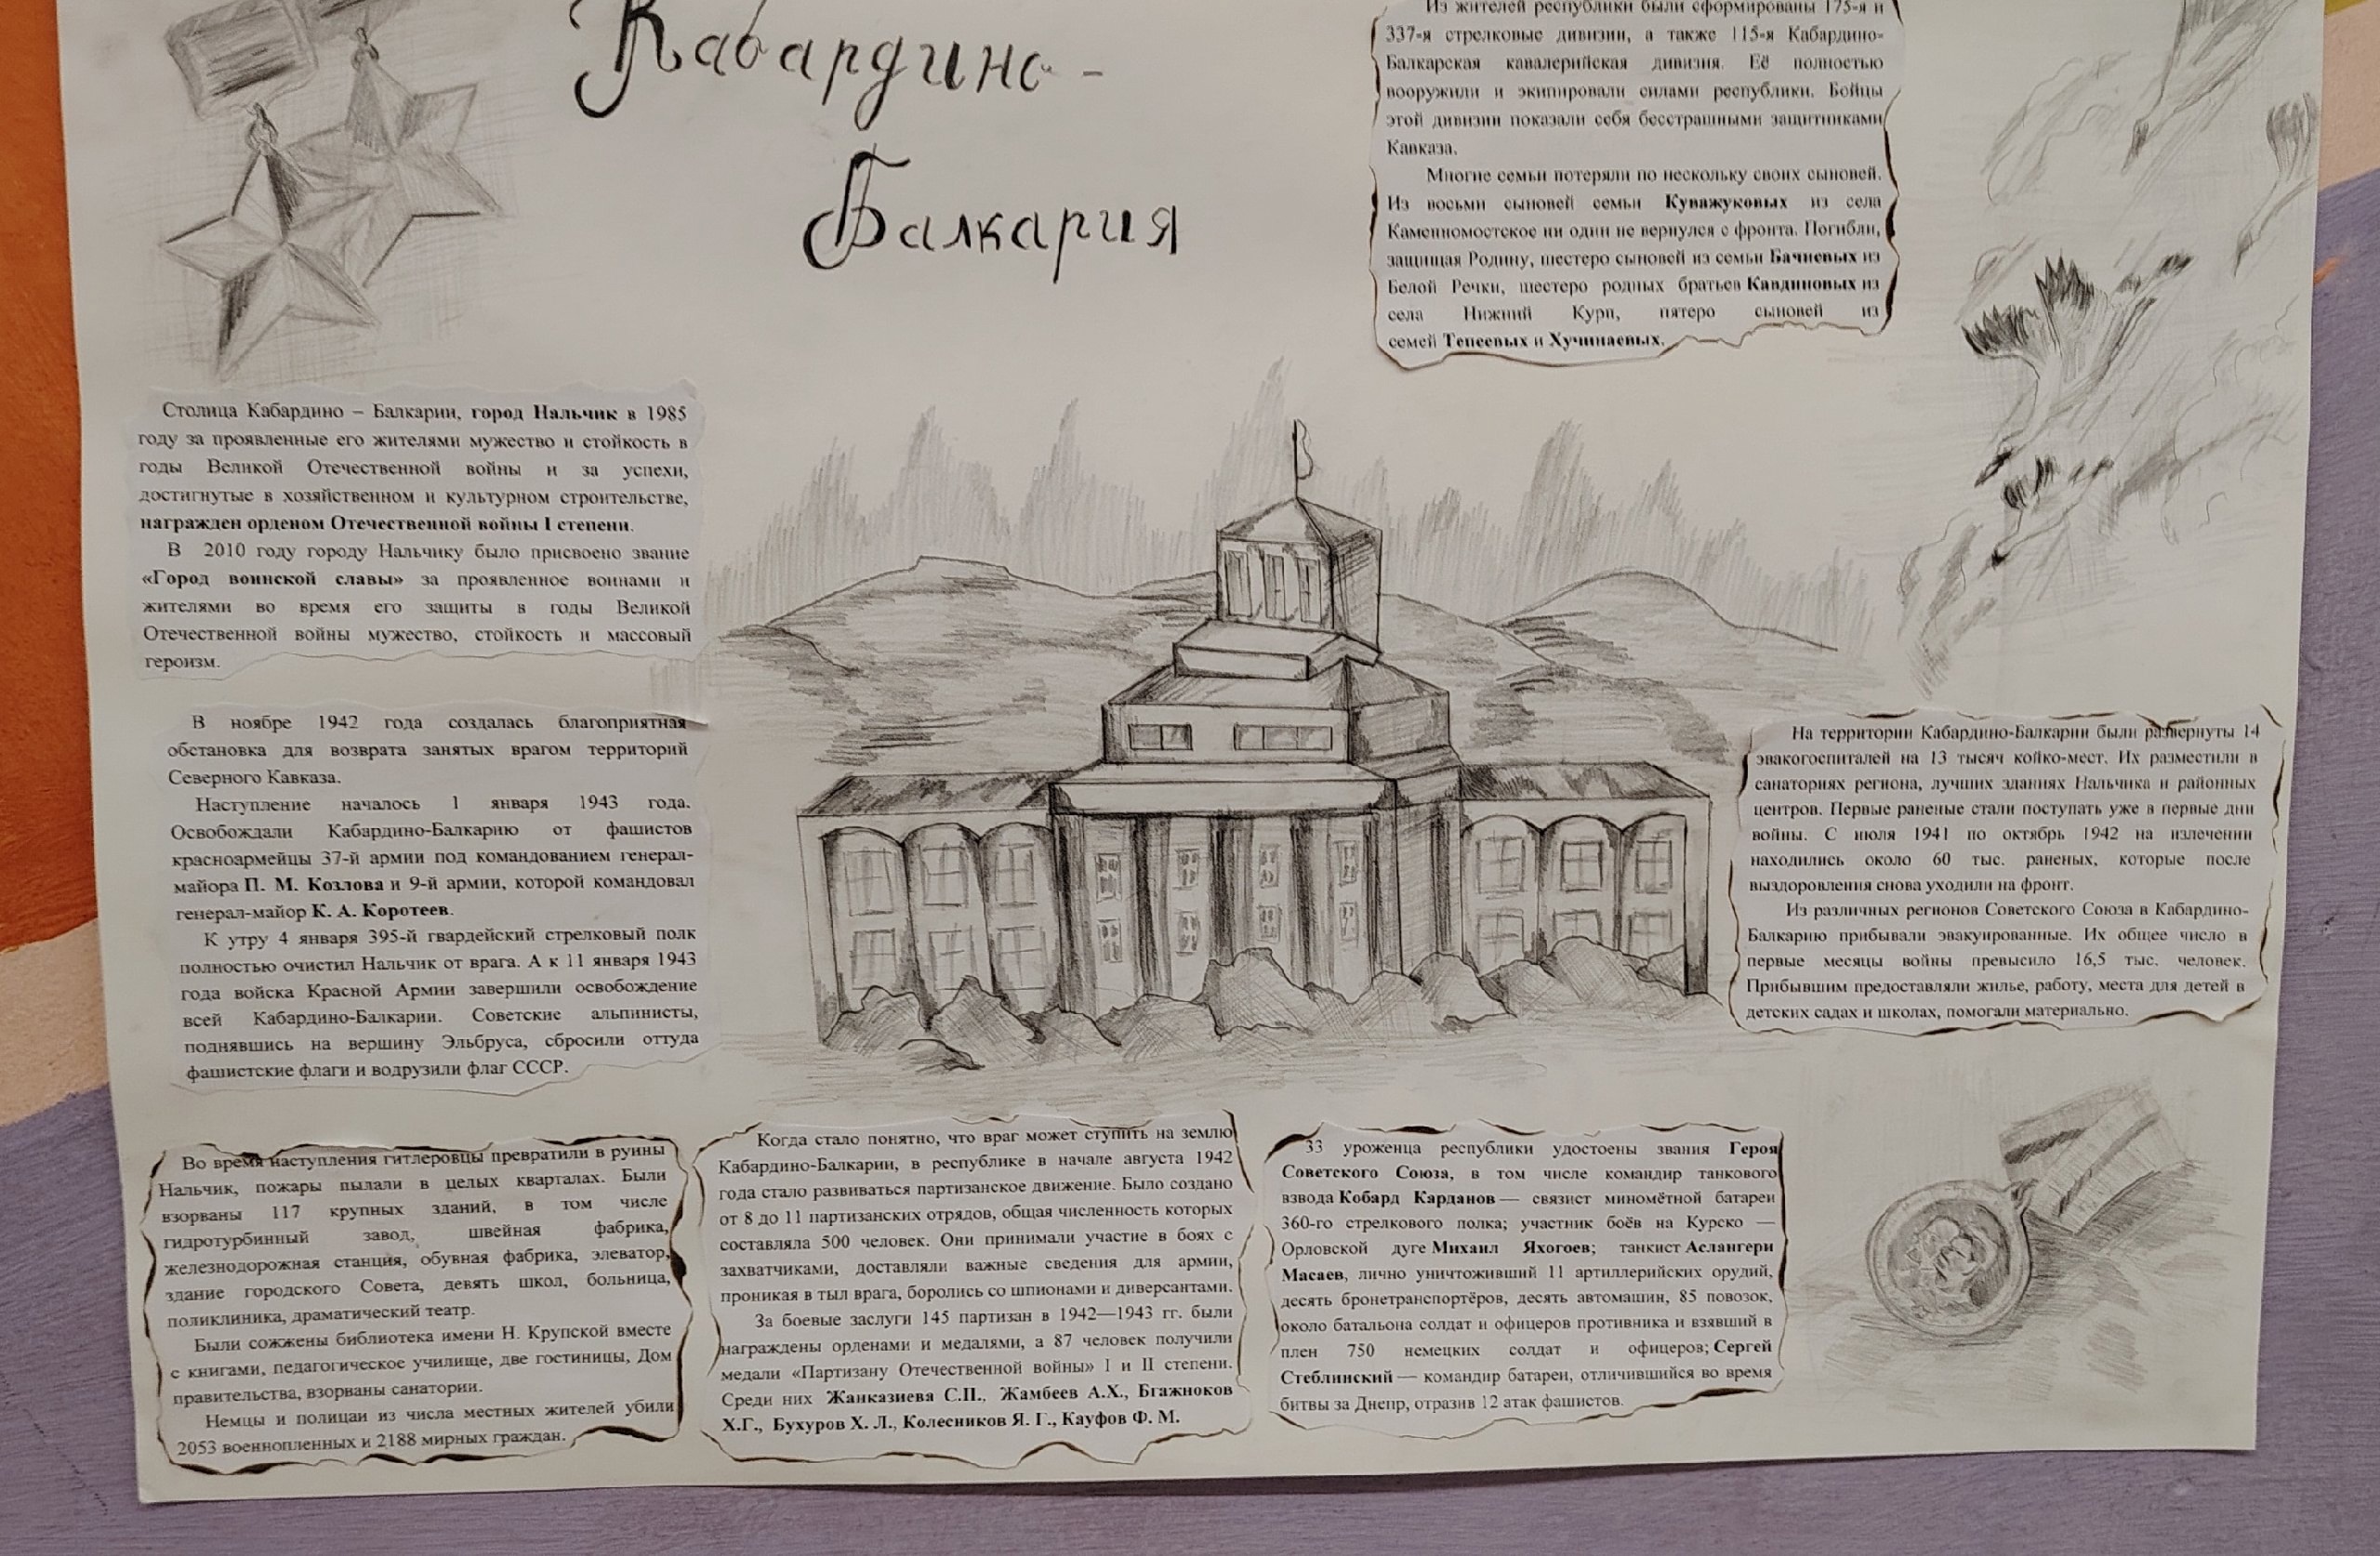 Кабардино -
Балкария
Из жителей республики были сформированы 175-я и
337-я стрелковые дивизии, а также 115-я Кабардино-
Балкарская кавалерийская дивизия. Её полностью
вооружили и экипировали силами республики. Бойцы
этой дивизии показали себя бесстрашными защитниками
Кавказа.
Многие семьи потеряли по нескольку своих сыновей.
Из восьми сыновей семьи Куважуковых из села
Каменномостское ни один не вернулся с фронта. Погибли,
защищая Родину, шестеро сыновей из семьи Бачиевых из
Белой Речки, шестеро родных братьев Кавдиновых из
села Нижний Курп, пятеро сыновей из
семей Тепеевых и Хучинаевых.
Столица Кабардино – Балкарии, город Нальчик в 1985
году за проявленные его жителями мужество и стойкость в
годы Великой Отечественной войны и за успехи,
достигнутые в хозяйственном и культурном строительстве,
награжден орденом Отечественной войны I степени.
В 2010 году городу Нальчику было присвоено звание
«Город воинской славы» за проявленное воинами и
жителями во время его защиты в годы Великой
Отечественной войны мужество, стойкость и массовый
героизм.
В ноябре 1942 года создалась благоприятная
обстановка для возврата занятых врагом территорий
Северного Кавказа.
Наступление началось 1 января 1943 года.
Освобождали Кабардино-Балкарию от фашистов
красноармейцы 37-й армии под командованием генерал-
майора П. М. Козлова и 9-й армии, которой командовал
генерал-майор К. А. Коротеев.
К утру 4 января 395-й гвардейский стрелковый полк
полностью очистил Нальчик от врага. А к 11 января 1943
года войска Красной Армии завершили освобождение
всей Кабардино-Балкарии. Советские альпинисты,
поднявшись на вершину Эльбруса, сбросили оттуда
фашистские флаги и водрузили флаг СССР.
На территории Кабардино-Балкарии были развернуты 14
эвакогоспиталей на 13 тысяч койко-мест. Их разместили в
санаториях региона, лучших зданиях Нальчика и районных
центров. Первые раненые стали поступать уже в первые дни
войны. С июля 1941 по октябрь 1942 на излечении
находились около 60 тыс. раненых, которые после
выздоровления снова уходили на фронт.
Из различных регионов Советского Союза в Кабардино-
Балкарию прибывали эвакуированные. Их общее число в
первые месяцы войны превысило 16,5 тыс. человек.
Прибывшим предоставляли жилье, работу, места для детей в
детских садах и школах, помогали материально.
Во время наступления гитлеровцы превратили в руины
Нальчик, пожары пылали в целых кварталах. Были
взорваны 117 крупных зданий, в том числе
гидротурбинный завод, швейная фабрика,
железнодорожная станция, обувная фабрика, элеватор,
здание городского Совета, девять школ, больница,
поликлиника, драматический театр.
Были сожжены библиотека имени Н. Крупской вместе
с книгами, педагогическое училище, две гостиницы, Дом
правительства, взорваны санатории.
Немцы и полицаи из числа местных жителей убили
2053 военнопленных и 2188 мирных граждан.
Когда стало понятно, что враг может ступить на землю
Кабардино-Балкарии, в республике в начале августа 1942
года стало развиваться партизанское движение. Было создано
от 8 до 11 партизанских отрядов, общая численность которых
составляла 500 человек. Они принимали участие в боях с
захватчиками, доставляли важные сведения для армии,
проникая в тыл врага, боролись со шпионами и диверсантами.
За боевые заслуги 145 партизан в 1942—1943 гг. были
награждены орденами и медалями, а 87 человек получили
медали «Партизану Отечественной войны» I и II степени.
Среди них Жанказиева С.П., Жамбеев А.Х., Бгажноков
Х.Г., Бухуров Х. Л., Колесников Я. Г., Кауфов Ф. М.
33 уроженца республики удостоены звания Героя
Советского Союза, в том числе командир танкового
взвода Кобард Карданов — связист миномётной батареи
360-го стрелкового полка; участник боёв на Курско —
Орловской дуге Михаил Яхогоев; танкист Аслангери
Масаев, лично уничтоживший 11 артиллерийских орудий,
десять бронетранспортёров, десять автомашин, 85 повозок,
около батальона солдат и офицеров противника и взявший в
плен 750 немецких солдат и офицеров; Сергей
Стеблинский — командир батареи, отличившийся во время
битвы за Днепр, отразив 12 атак фашистов.